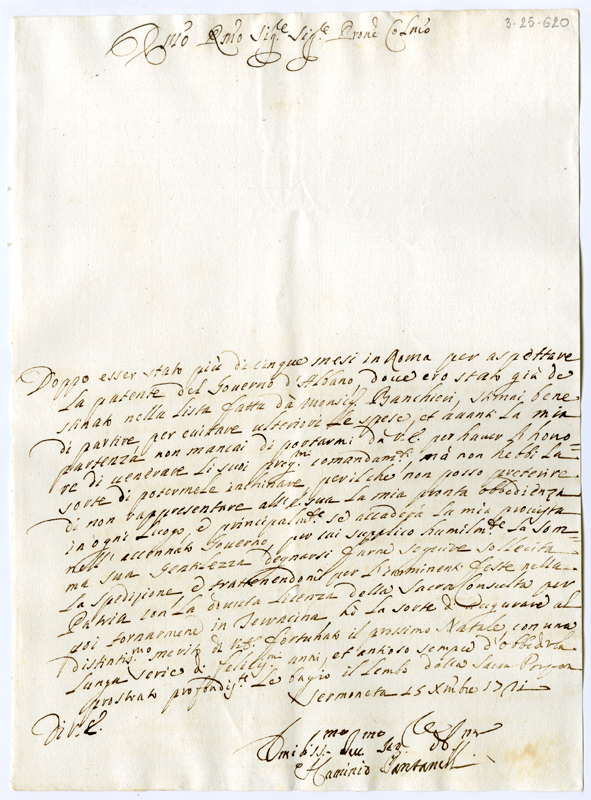 3-25-620
Emo Rmo Sig.re Sig.re Prone Colmo
Doppo esser stato più di cinque mesi in Roma per aspettare
la patente del Governo d'Albano, dove ero stato già de
stinato nella lista fatta dà Monsig.r Banchieri, stimai bene
di partire per evitare ulteriori le spese, et avanti la mia
partenza non mancai di portarmi dà V.E. per haver l'hono=
re di venerare li suoi preg.mi comandam.ti, mà non hebbi la
sorte di potermele inchinare, perilche non posso preterire
di non rappresentare all'E.V. la mia pronta obbedienza
in ogni luogo, e principalm.te se accaderà la mia provista
nell'accennato Governo, per cui supplico humilm.te la som=
ma sua gentilezza degnarsi farne seguire sollecita
la spedizione, e trattenendomi per l'imminenti feste nella
Patria con la dovuta licenza della Sacra Consulta per
poi tornarmene in Terracina hò la sorte di augurare al
distintis.mo merito di V.E. fortunato il prossimo Natale, con una
lunga serie di felicis.mi anni, et ansioso sempre d'obbedirla
prostrato profondis.te Le bagio il lembo della Sacra Porpora
Sermoneta 15 Xmbre 1721
Di V.E.
Umiliss.mo Dev.mo Ser.
Flaminio Pantanelli